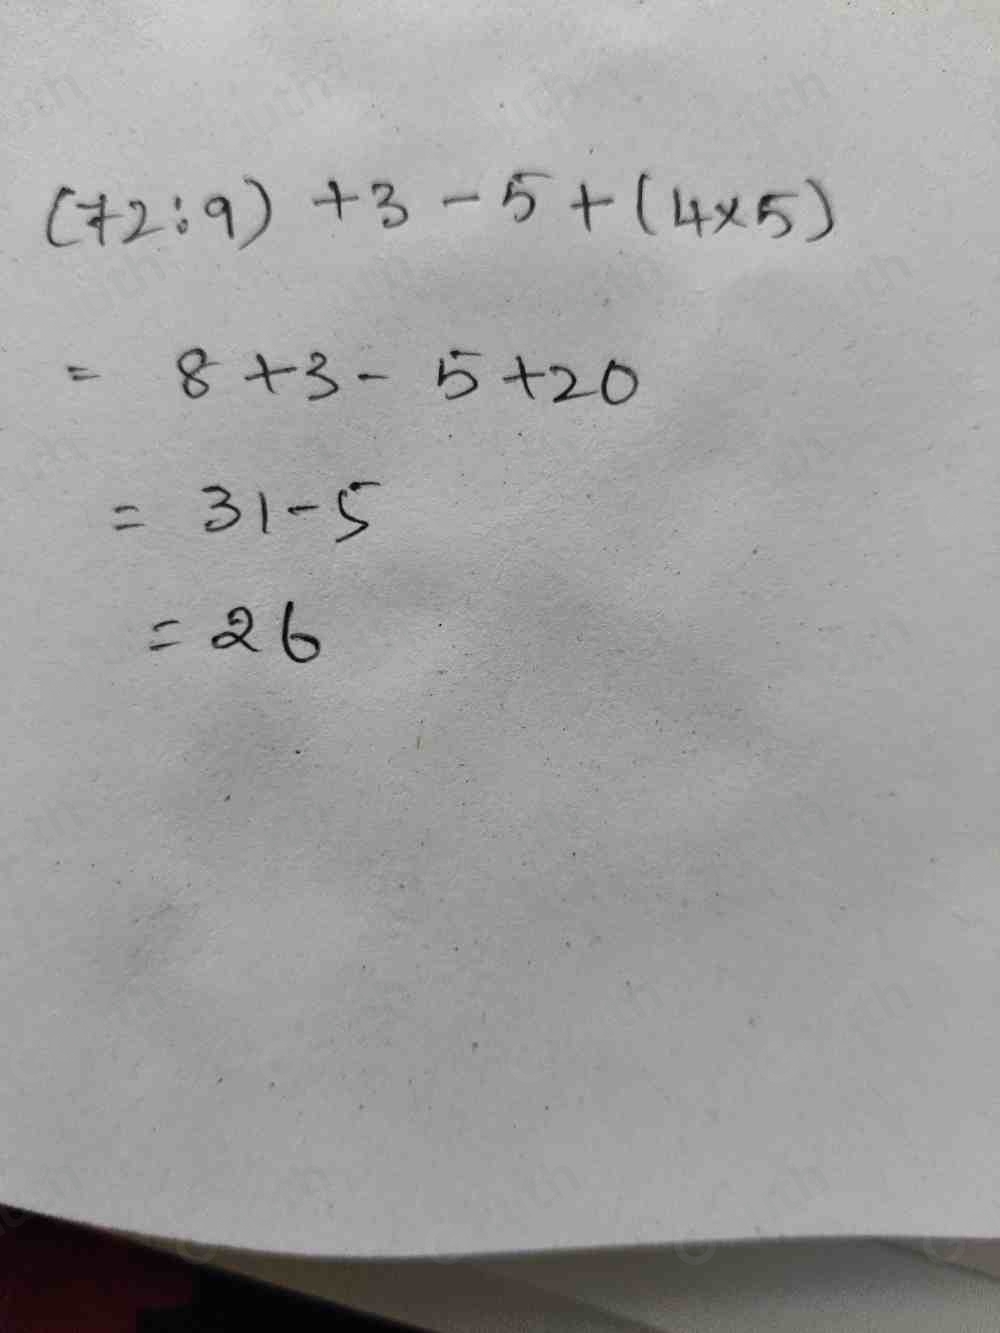 (72:9) +3 - 5 + (4×5)
= 8+3 - 5+20
= 31-5
= 26